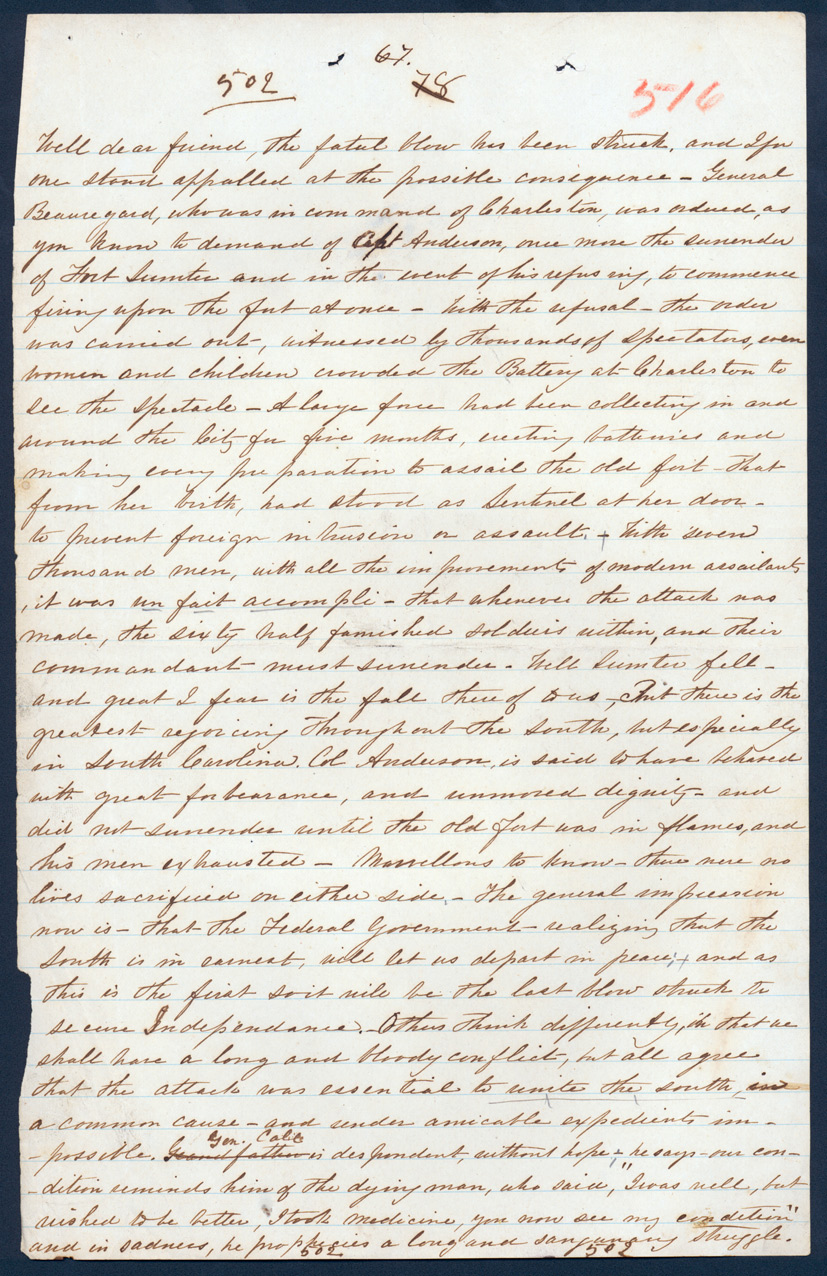 67.
502 78 516
Well dear friend, the fatal blow has been struck, and I for
one stand appalled at the possible consequence - General
Beauregard, who was in command of Charleston, was ordered, as
you know to demand of Capt Anderson, once more the surrender
of Fort Sumter and in the event of his refusing, to commence
firing upon the fort at once - With the refusal - the order
was carried out, witnessed by thousands of spectators, even
women and children crowded the Battery at Charleston to
see the spectacle - A large force had been collecting in and
around the City for five months, erecting batteries and
making every preparation to assail the old fort - that
from her birth, had stood as Sentinel at her door -
to prevent foreign intrusion or assault. - With seven
thousand men, with all the improvements of modern assailants
, it was un fait accompli - that whenever the attack was
made, the sixty half famished soldiers within, and their
commandant must surrender. Well Sumter fell -
and great I fear is the fall thereof to us -, But there is the
greatest rejoicing throughout the south, but especially
in South Carolina. Col Anderson, is said to have behaved
with great forbearance, and unmoved dignity - and
did not surrender until the old fort was in flames, and
his men exhausted - Marvellous to know - there were no
lives sacrificed on either side. - The general impression
now is - that the Federal Government - realizing that the
South is in earnest, will let us depart in peace; + and as
this is the first so it will be the last blow struck to
secure Independance. - Others think differently, that we
shall have a long and bloody conflict, but all agree
that the attack was essential to unite the south, in
a common cause - and render amicable expedients im-
-possible. Grandfather Gen. Call is despondent, without hope - he says - our con-
-dition reminds him of the dying man, who said, "I was well, but
wished to be better, I took medicine, you now see my condition"
and in sadness, he prophecies a long and sanguinary struggle.
502 502